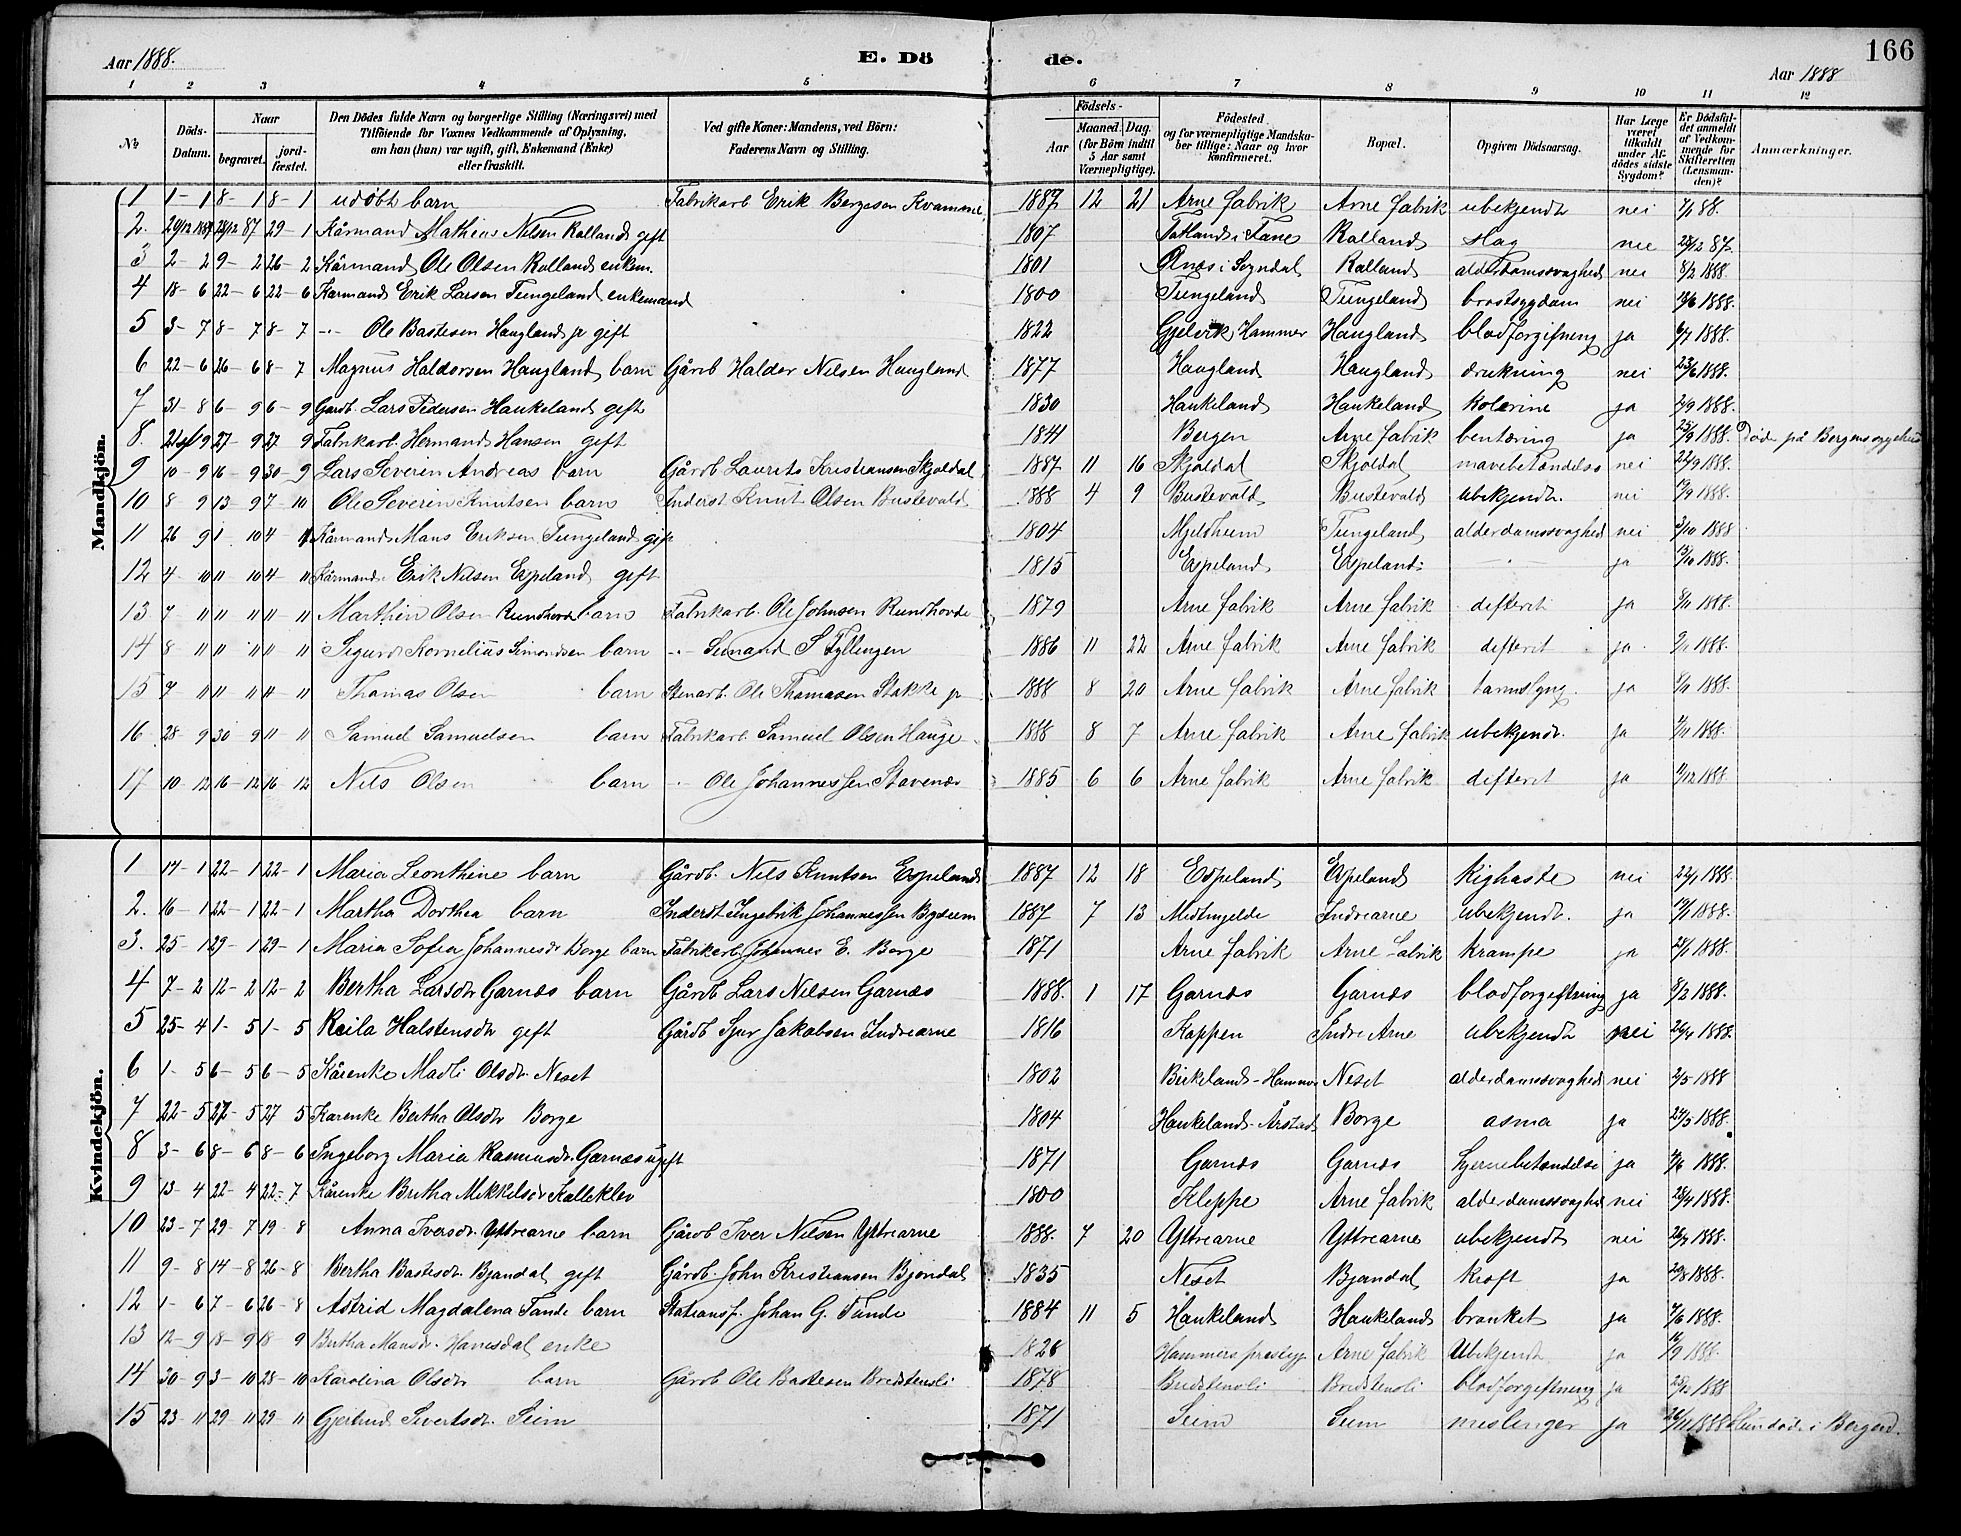 Aar 1888. E. Dö de. Aar 1888 166
1 2 3 4 5 6 7 8 9 10 11 12
№ Döds-Datum. Naar begravet. jord-fæstet. Den Dödes fulde Navn og borgerlige Stilling (Næringsvei) med Tilföiende for Voxnes Vedkommende af Oplysning, om han (hun) var ugift, gift, Enkemand (Enke) eller fraskilt. Ved gifte Koner: Mandens, ved Börn: Faderens Navn og Stilling. Födsels- Aar Maaned. Dag. (for Börn indtil 5 Aar samt Værnepligtige). Födested og for værnepligtige Mandskaber tillige: Naar og hvor konfirmeret. Bopæl. Opgiven Dödsaarsag. Har Læge været tilkaldt under Afdödes sidste Sygdom? Er Dödsfaldet anmeldt af Vedkommende for Skifteretten (Lensmanden)? Anmærkninger.
Mandkjön.
1 1-1 8-1 8-1 udöbt barn Fabrikarb Erik Bergeson Kvamene 1887 12 21 Arne fabrik Arne fabrik ubekjendt nei 7/1 88.
2. 29-1 Kårmand Mathias Nilsen Kalland gift 1807 Totland i Fane Kalland slag nei 28/12 87.
3 2-2 9-2 26-2 Kårmand Ole Olsen Kalland enkem. 1801 Ølnæs i Sogndal Kalland alderdomssvaghed nei 8/2 1888.
4 18-6 22-6 22-6 Kårmand Erik Larsen Tungeland enkemand 1800 Tungeland Tungeland brostsygdom nei 1888.
5 3-7 8-7 8-7 -"- Ole Bastesen Haugland gift 1822 Gjelvik Hammer Haugland blodforgiftning ja 6/7 1888.
6 22-6 26-6 8-7 Magnus Haldorsen Haugland barn Gårdb Haldor Nilsen Haugland 1877 Haugland Haugland drukning nei 23/6 1888.
7 31-8 6-9 6-9 Gardb. Lars Pedersen Haukeland gift 1830 Haukeland Haukeland kolerine ja 1888.
8. 9 27-9 27-9 Fabrikarb. Hermand Hansen gift 1841 Bergen Arne fabrik bentæring ja 1888. Døde på Bergens sygehus
9 10-9 16-9 30-9 Lars Severin Andreas barn Gårdb Laurits Kristiansen Skjoldal 1887 11 16 Skjoldal Skjoldal mavebetændelse nei 22/9 1888.
10 8-9 13-9 7-10 Ole Severin Knutsen barn Inderst Knut Olsen Bustevold 1888 4 9 Bustevold Bustevold ubekjendt. nei 1888.
11 26-9 1-10 4-11 Kårmand Mons Eriksen Tungeland gift 1804 Mjeldheim Tungeland alderdomssvaghed nei 3/10 1888
12 4-10 11-10 4-11 Kårmand. Erik Nilsen Espeland gift 1815 Espeland Espeland -"- ja 1888.
13 7-11 11-11 11-11 Marthin Olsen Rundhovde barn Fabrikarb. Ole Johnsen Rundhovde 1879 Arne fabrik Arne fabrik difterit ja 8/11 1888.
14 8-11 11-11 11-11 Sigurd Kornelius Simondsen barn -"- Simand S Fyllingen 1886 11 22 Arne fabrik Arne fabrik difterit ja 1888.
15 7-11 11-11 11-11 Thomas Olsen barn Stenarb. Ole Thomasen Stakke 1888 8 20 Arne fabrik Arne fabrik ja 1888.
16 28-9 30-9 11-11 Samuel Samuelsen barn Fabrikarb. Samuel Olsen Hauge 1888 8 7 Arne fabrik Arne fabrik ubekjendt. ja 1888.
17 10-12 16-12 16-12 Nils Olsen barn -"- Ole Johannessen Stavenæs 1885 6 6 Arne fabrik Arne fabrik difterit ja 1888
Kvindekjön.
1 14-1 22-1 22-1 Maria Leonthine barn Gårdb. Nils Knutsen Espeland 1887 12 18 Espeland Espeland kighoste nei 22/1 1888.
2. 16-1 22-1 22-1 Martha Dorthea barn Inderst Ingebrik Johannessen 1887 7 13 Midtmjelde Indrearne ubekjendt. ja 1888.
3. 25-1 29-1 29-1 Maria Sofia Johannesdr Borge barn Fabrikarb. Johannes E. Borge 1871 Arne fabrik Arne fabrik krampe ja 1888.
4 7-2 12-2 12-2 Bertha Larsdtr Garnæs barn Gårdb Lars Nilsen Garnæs 1888. 1 17 Garnæs Garnæs blodforgiftning ja 8/2 1888.
5 25-4 1-5 1-5 Halstensdtr gift Gårdb Sjur Jakobsen Indrearne 1816 Koppen Indre Arne ubekjendt nei 26/4 1888.
6 1-5 6-5 6-5 Kårenke Madli Olsdr. Neset 1802 Birkeland-Hammer Neset alderdomssvaghed nei 2/5 1888
7 22-5 27-5 27-5 Karenke Bertha Olsdtr Borge 1804 Haukeland-Årstad Borge asma ja 1888.
8 3-6 8-6 8-6 Ingeborg Maria Rasmusdr. Garnæs ugift 1871 Garnæs Garnæs hjernebetændelse ja 1888.
9 13-4 22-4 22-7 Kårenke Bertha Mikkelsdr Kalleklev 1800 Kleppe Arne fabrik alderdomssvaghed nei 1888.
10 23-7 29-7 19-8 Anna Iversdr. Yttrearne barn Gårdb Iver Nilsen Yttrearne 1888. 7 20 Yttrearne Yttrearne ubekjendt nei 1888.
11 9-8 14-8 26-8 Bertha Bastesdr. Bjøndal gift Gårdb. John Kristiansen Bjøndal 1835 Neset Bjøndal kræft ja 1888.
12 1-6 7-6 26-8 Astrid Magdalena Tande barn Stationsf. Johan G. Tande 1884 11 5 Haukeland Haukeland bronket ja 1888.
13 12-9 18-9 18-9 Bertha Monsdr. Hanisdal enke 1826 Hammers Arne fabrik Ubekjendt ja 1888.
14 30-9 3-10 28-10 Karolina Olsdtr barn Gårdb Ole Bastesen Bredstenoli 1878 Bredstenoli Bredstenoli blodforgiftning ja 1888
15 23-11 29-11 29-11 Gjertrud Sivertsdr. Seim 1871 Seim Seim meslinger ja 1888 Hun døde i Bergen.